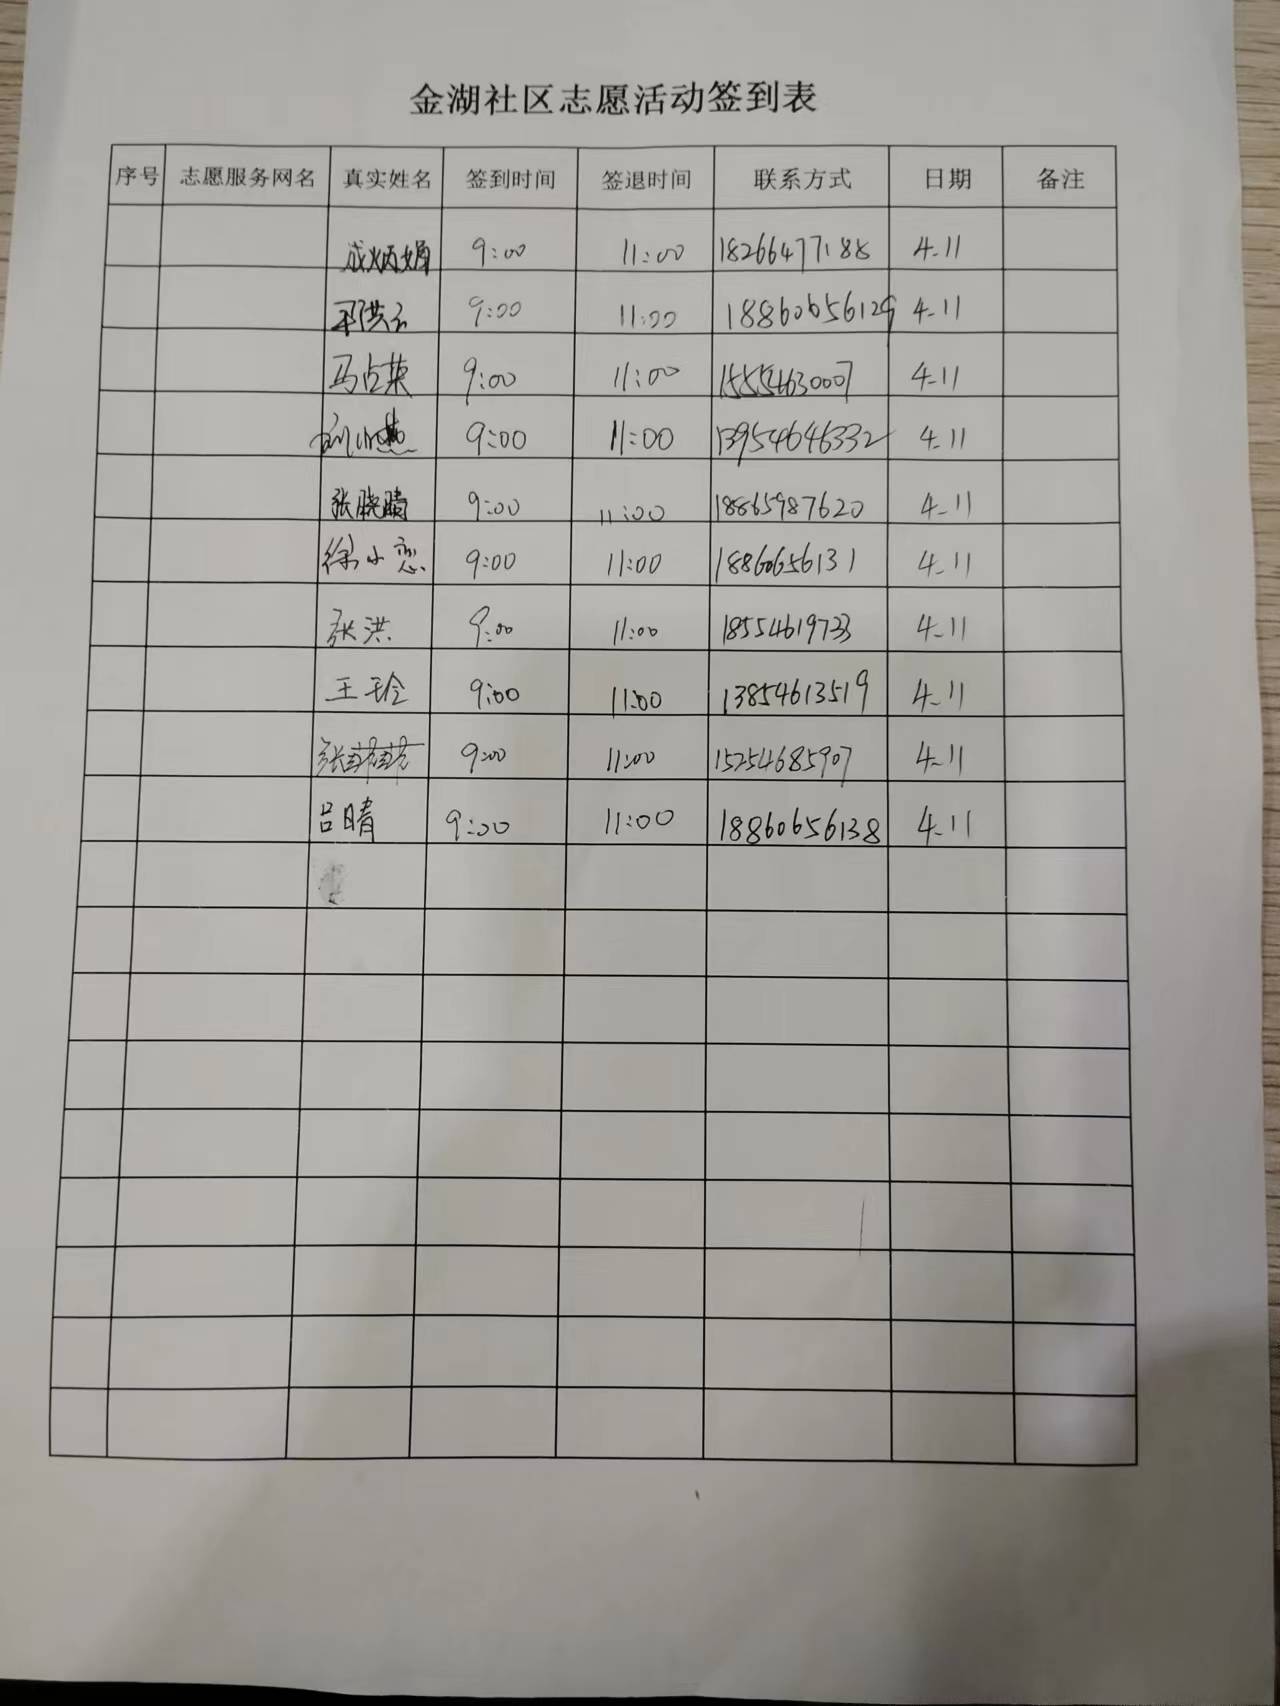 金湖社区志愿活动签到表
序号 志愿服务网名 真实姓名 签到时间 签退时间 联系方式 日期 备注
成炳娟 9:00 11:00 18266477188 4.11
洪云 9:00 11:00 18860656129 4.11
马占英 9:00 11:00 15554630007 4.11
刘小燕 9:00 11:00 13954646332 4.11
张晓晴 9:00 11:00 18865987620 4.11
徐小恋 9:00 11:00 18860656131 4.11
张洪 9:00 11:00 18554619733 4.11
王玲 9:00 11:00 13854613519 4.11
张 9:00 11:00 15254685907 4.11
吕晴 9:00 11:00 18860656138 4.11